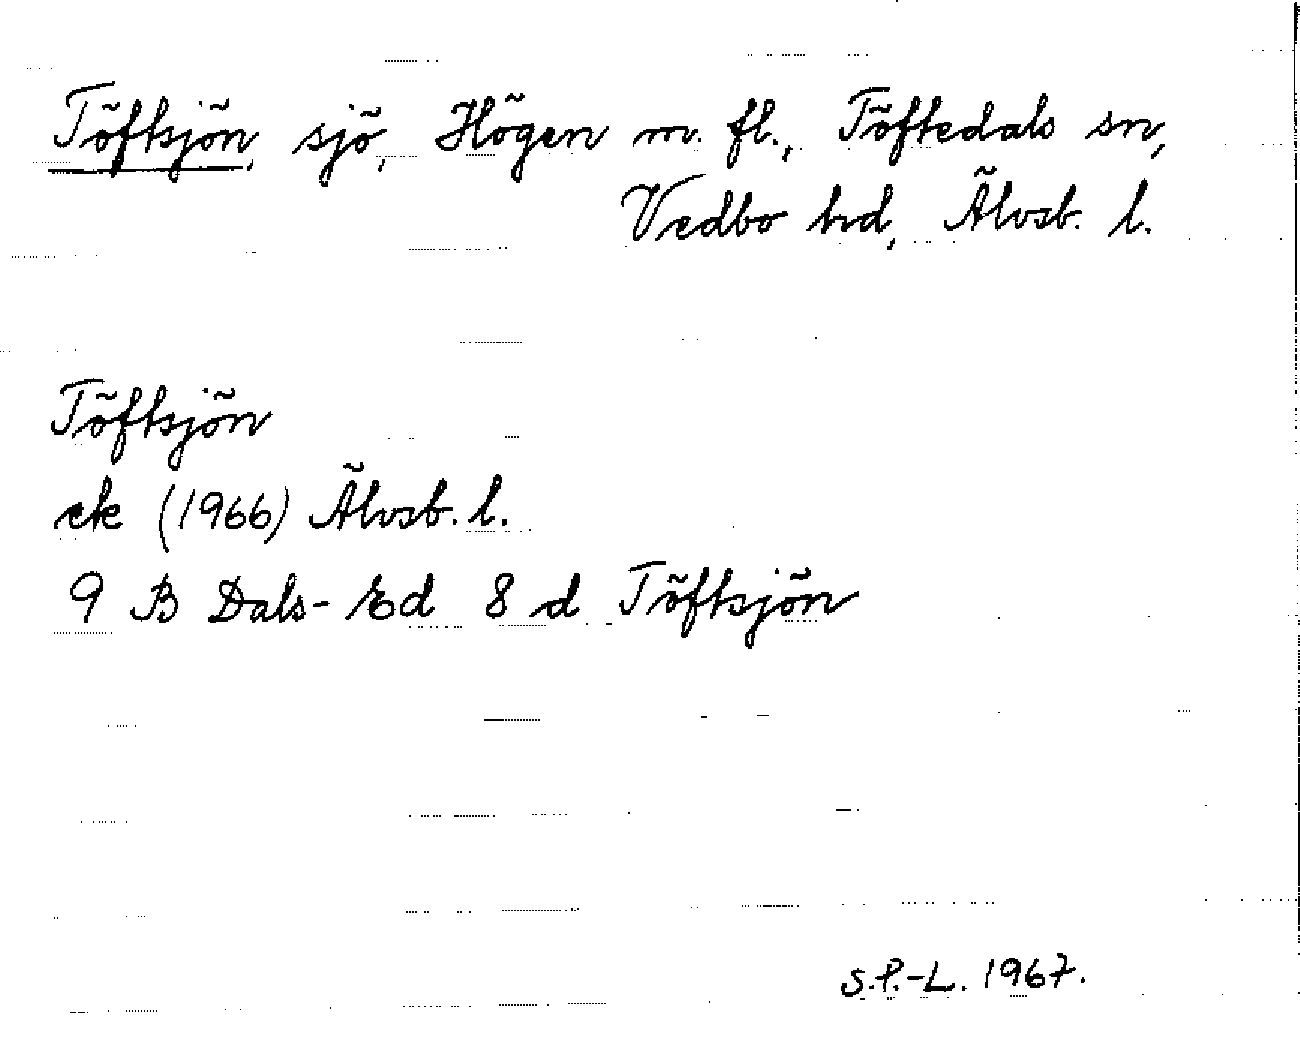 Töftsjön, sjö, Högen m. fl., Töftedals sn,
Vedbo hd, Älvsb. l.
Töftsjön
ek (1966) Älvsb. l.
9 B Dals-Ed 8 d Töftsjön
S.P.-L. 1967.